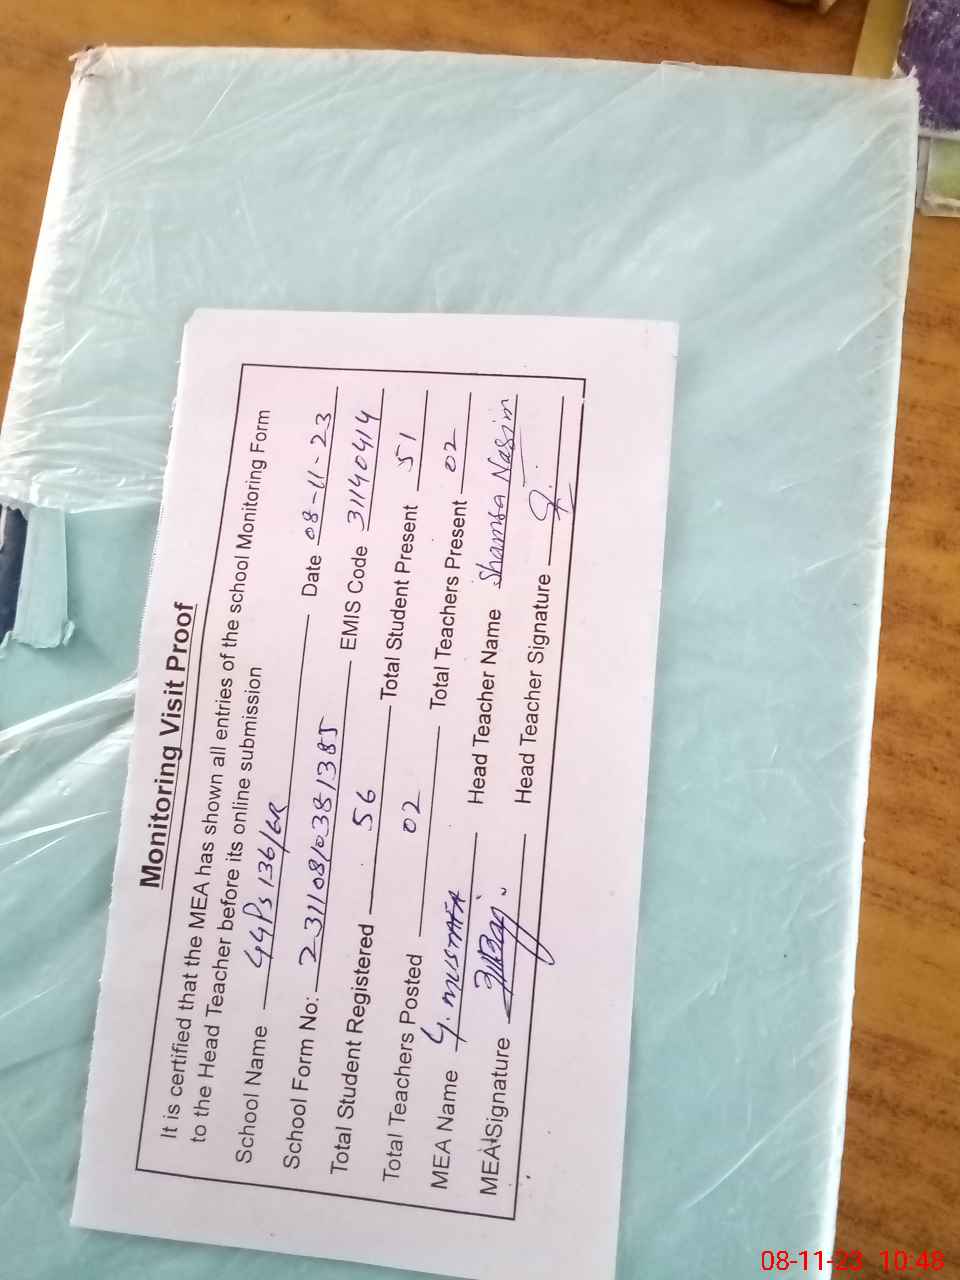 Monitoring Visit Proof
It is certified that the MEA has shown all entries of the school Monitoring Form
to the Head Teacher before its online submission
School Name GGPS 136/6R Date 08-11-23
School Form No: 231108103811385 EMIS Code 31140414
Total Student Registered 56 Total Student Present 51
Total Teachers Posted 02 Total Teachers Present 02
MEA Name G. MUSTAFA Head Teacher Name Shamsa Nasim
MEA Signature Head Teacher Signature
08-11-23 10:48